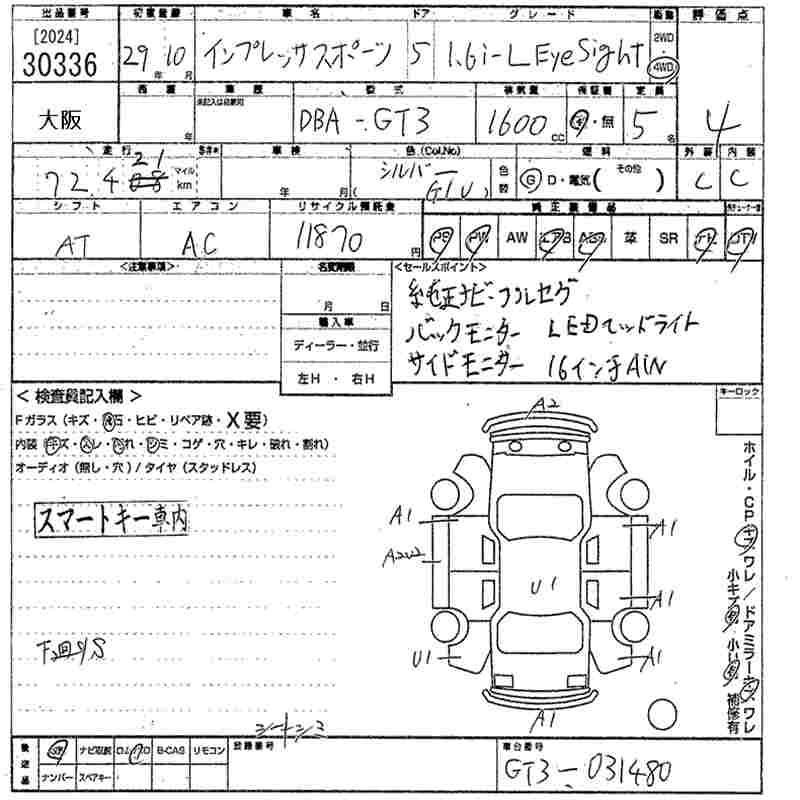 出品番号 初度登録 車名 ドア グレード 駆動 評価点
[2024]
30336
29年 10月 インプレッサスポーツ 5 1.6i-L EyeSight 2WD 4WD
大阪
年 車歴 型式 排気量 保証書 定員
未記入は自家用
年 DBA-GT3 1600cc 有・無 5名 4
走行 車検 色(Col.No) 色替 燃料 外装 内装
21
72.408 マイル km 年 月 シルバー (G1U) G D・電気( その他 ) C C
シフト エアコン リサイクル預託金 純正装備品
AT AC 11870円 PS PW AW ABS 革 SR TV
<注意事項> 名変期限 <セールスポイント>
月 日 純正ナビ・フルセグ
輸入車 バックモニター LEDヘッドライト
ディーラー・並行 サイドモニター 16インチAW
左H・右H
<検査員記入欄> キーロック
Fガラス(キズ・飛石・ヒビ・リペア跡・X要)
内装(キズ・スレ・汚れ・シミ・コゲ・穴・キレ・破れ・割れ)
オーディオ(無し・穴)/タイヤ(スタッドレス)
スマートキー車内
A2
A1 A1
U1 A1
U1 A1
A1
下廻りS
シートシミ
ホイル・CPキズ ワレ/ドアミラーキズ ワレ
小キズ有 小凹有 補修有
後送品 ナビ取説 B-CAS リモコン 登録番号 車台番号
ナンバー スペアキー GT3-031480